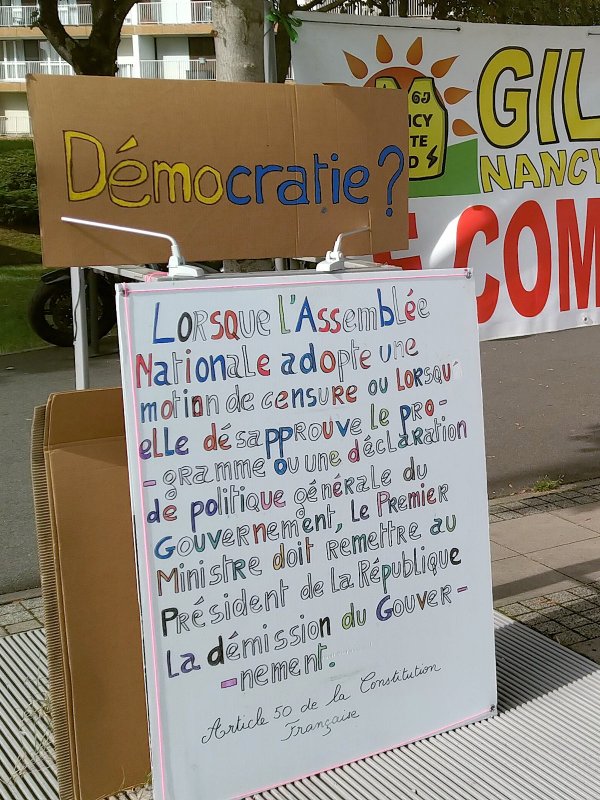 Démocratie?
GIL
NANCY
E COM
Lorsque l'Assemblée
Nationale adopte une
motion de censure ou lorsqu'
elle désapprouve le pro-
-gramme ou une déclaration
de politique générale du
Gouvernement, le Premier
Ministre doit remettre au
Président de la République
la démission du Gouver-
-nement.
Article 50 de la Constitution
Française